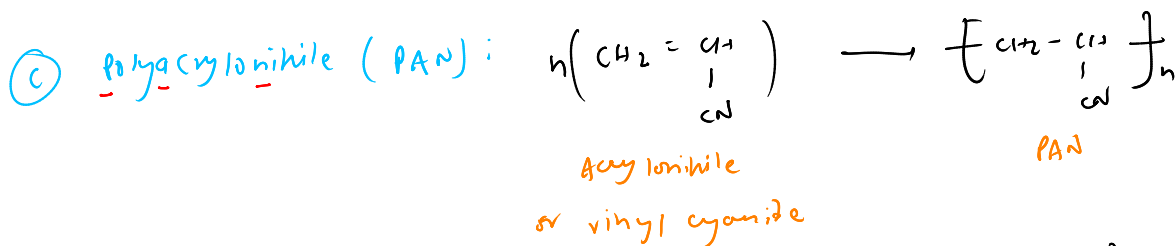 (C) Polyacrylonitrile (PAN) : n(CH2 = CH ⟶ [CH2 - CH]n
CN) CN
Acrylonitrile PAN
or vinyl cyanide